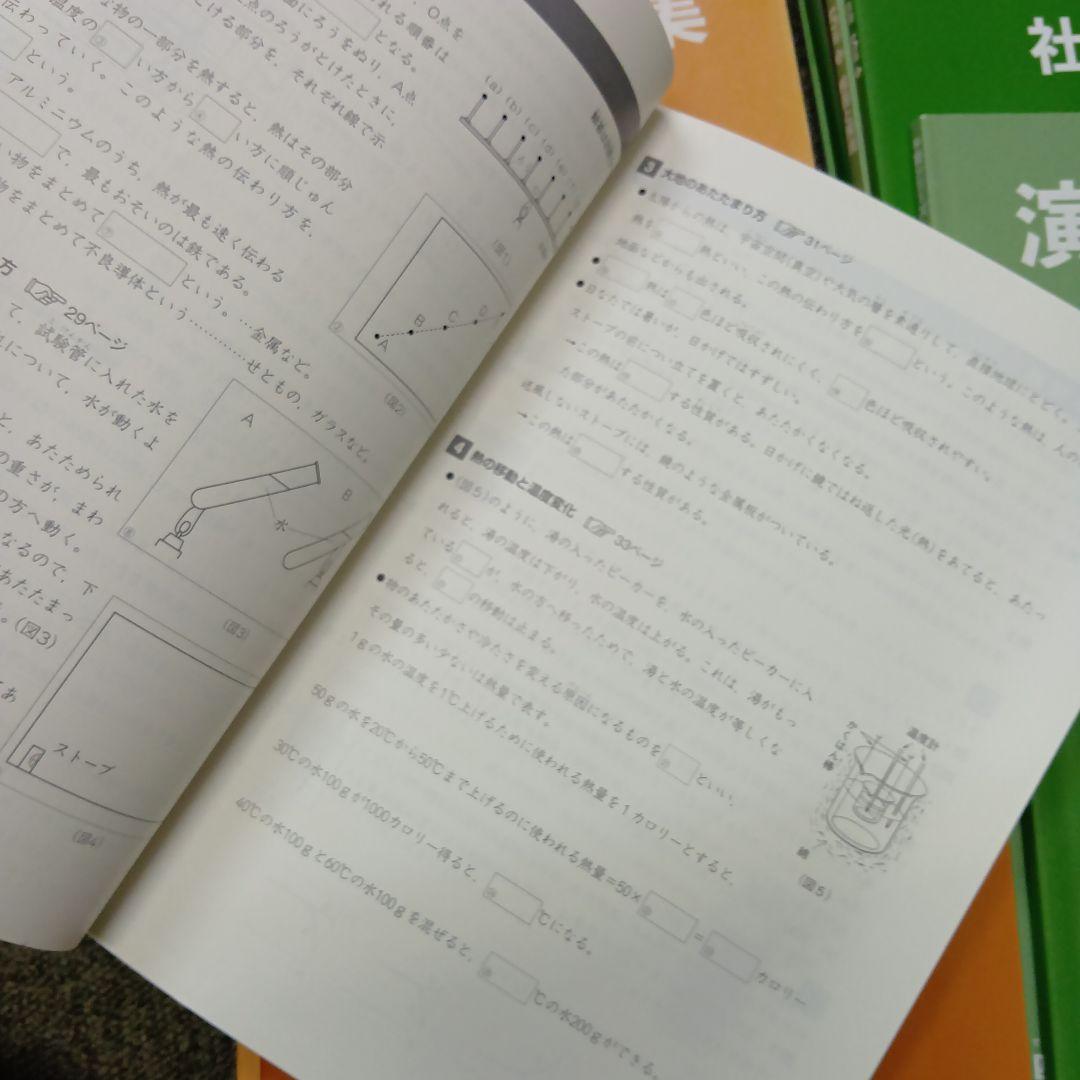 、O点を
れる順番は
面にろうをぬり、A点
となる。
点のろうがとけたときに、
ける部分を、それぞれ線で示
な物の一部分を熱すると、熱はその部分
温度の い方から い方に順じゅん
伝わっていく。このような熱の伝わり方を、
という。
アルミニウムのうち、熱が最も速く伝わる
で、最もおそいのは鉄である。
い物をまとめて という。…金属など。
物をまとめて不良導体という………せともの、ガラスなど。
(a) (b) (c) (d)
(図1)
A B C D
(図2)
方 29ページ
て、試験管に入れた水を
について、水が動くよ
と、あたためられ
の重さが、まわ
の方へ動く。
なるので、下
あたたまっ
。(図3)
A
水
B
(図3)
てあ
ストーブ
(図4)
3 大地のあたたまり方 31ページ
●太陽からの熱は、宇宙空間(真空)や大気の層を素通りして、直接地球にとどく。
熱を 熱といい、この熱の伝わり方を という。このような熱は、人の
地面などからも出される。
● 熱は 色ほど吸収されにくく、 色ほど吸収されやすい。
●日なたでは暑いが、日かげではすずしい。
ストーブの前についたてを置くと、あたたかくなくなる。
→この熱は する性質がある。日かげに鏡ではね返した光(熱)をあてると、あたっ
た部分があたたかくなる。
送風しないストーブには、鏡のような金属板がついている。
→この熱は する性質がある。
4 熱の移動と温度変化 33ページ
●(図5)のように、湯の入ったビーカーを、水の入ったビーカーに入
れると、湯の温度は下がり、水の温度は上がる。これは、湯がもっ
ている が、水の方へ移ったためで、湯と水の温度が等しくな
ると、 の移動は止まる。
●物のあたたかさや冷たさを変える原因になるものを といい、
その量の多い少ないは熱量で表す。
1gの水の温度を1℃上げるために使われる熱量を1カロリーとすると、
50gの水を20℃から50℃まで上げるのに使われる熱量=50× = カロリー
30℃の水100gが1000カロリー得ると、 ℃になる。
40℃の水100gと60℃の水100gを混ぜると、 ℃の水200gができる。
温度計
かくはん棒
(図5)
集
社
演